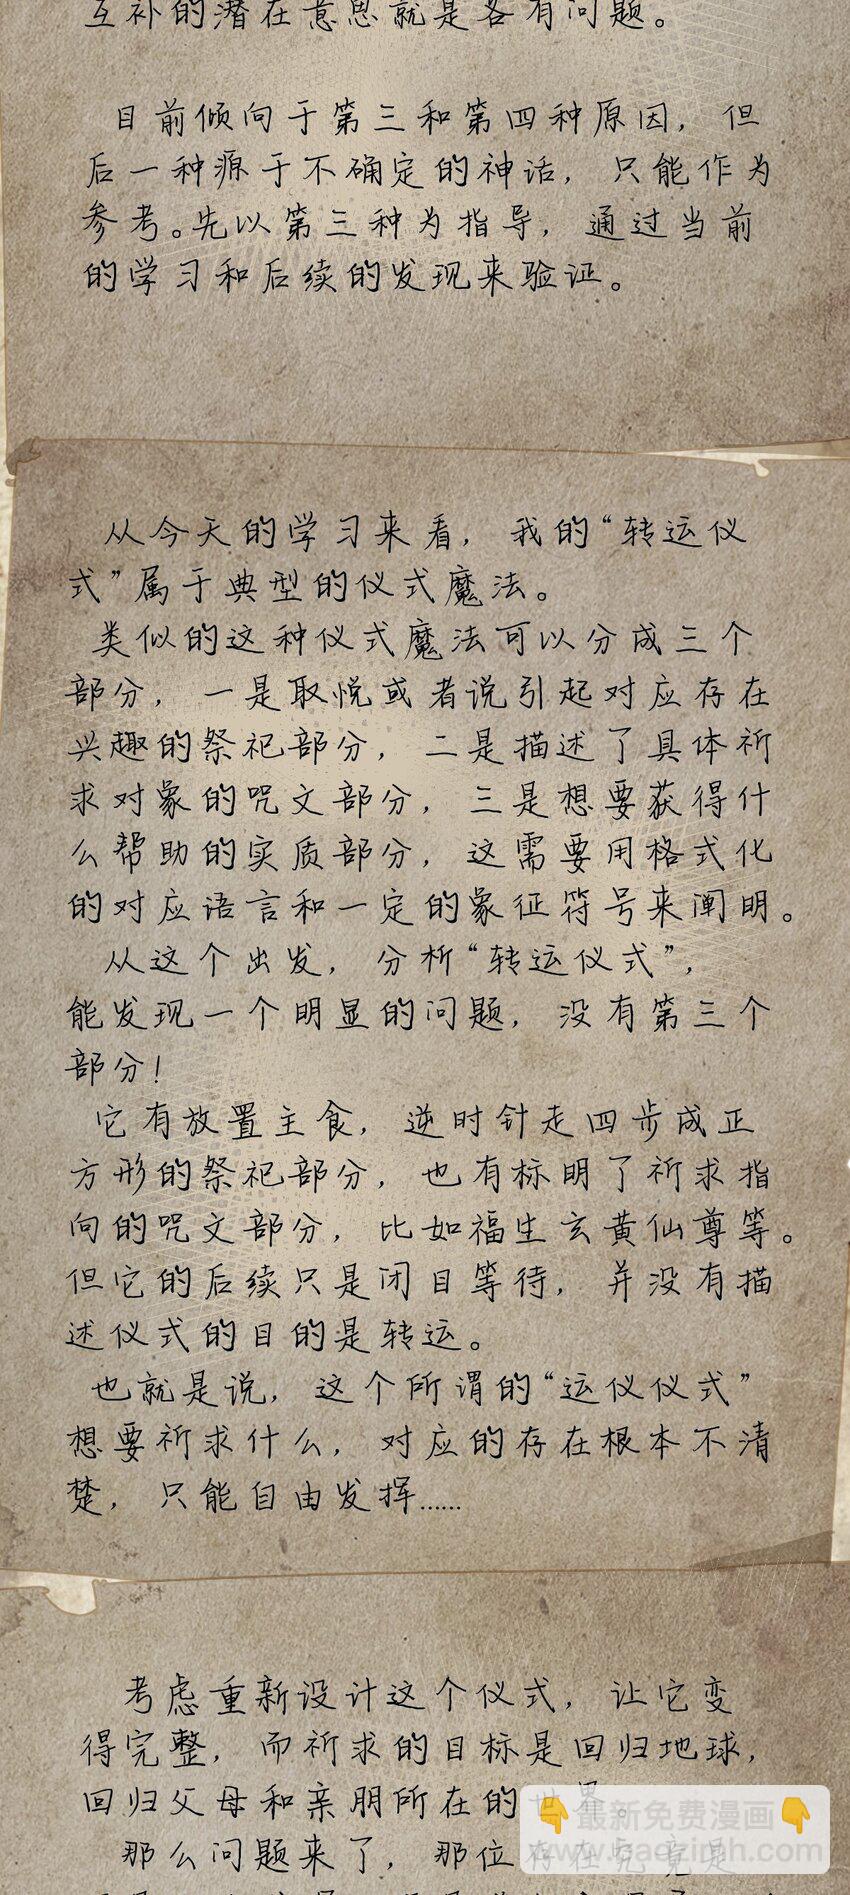 互补的潜在意思就是各有问题。
目前倾向于第三和第四种原因，但
后一种源于不确定的神话，只能作为
参考。先以第三种为指导，通过当前
的学习和后续的发现来验证。
从今天的学习来看，我的“转运仪
式”属于典型的仪式魔法。
类似的这种仪式魔法可以分成三个
部分，一是取悦或者说引起对应存在
兴趣的祭祀部分，二是描述了具体祈
求对象的咒文部分，三是想要获得什
么帮助的实质部分，这需要用格式化
的对应语言和一定的象征符号来阐明。
从这个出发，分析“转运仪式”，
能发现一个明显的问题，没有第三个
部分！
它有放置主食，逆时针走四步成正
方形的祭祀部分，也有标明了祈求指
向的咒文部分，比如福生玄黄仙尊等。
但它的后续只是闭目等待，并没有描
述仪式的目的是转运。
也就是说，这个所谓的“运仪仪式”
想要祈求什么，对应的存在根本不清
楚，只能自由发挥……
考虑重新设计这个仪式，让它变
得完整，而祈求的目标是回归地球，
回归父母和亲朋所在的世界。
👇最新免费漫画👇
那么问题来了，那位存在究竟是